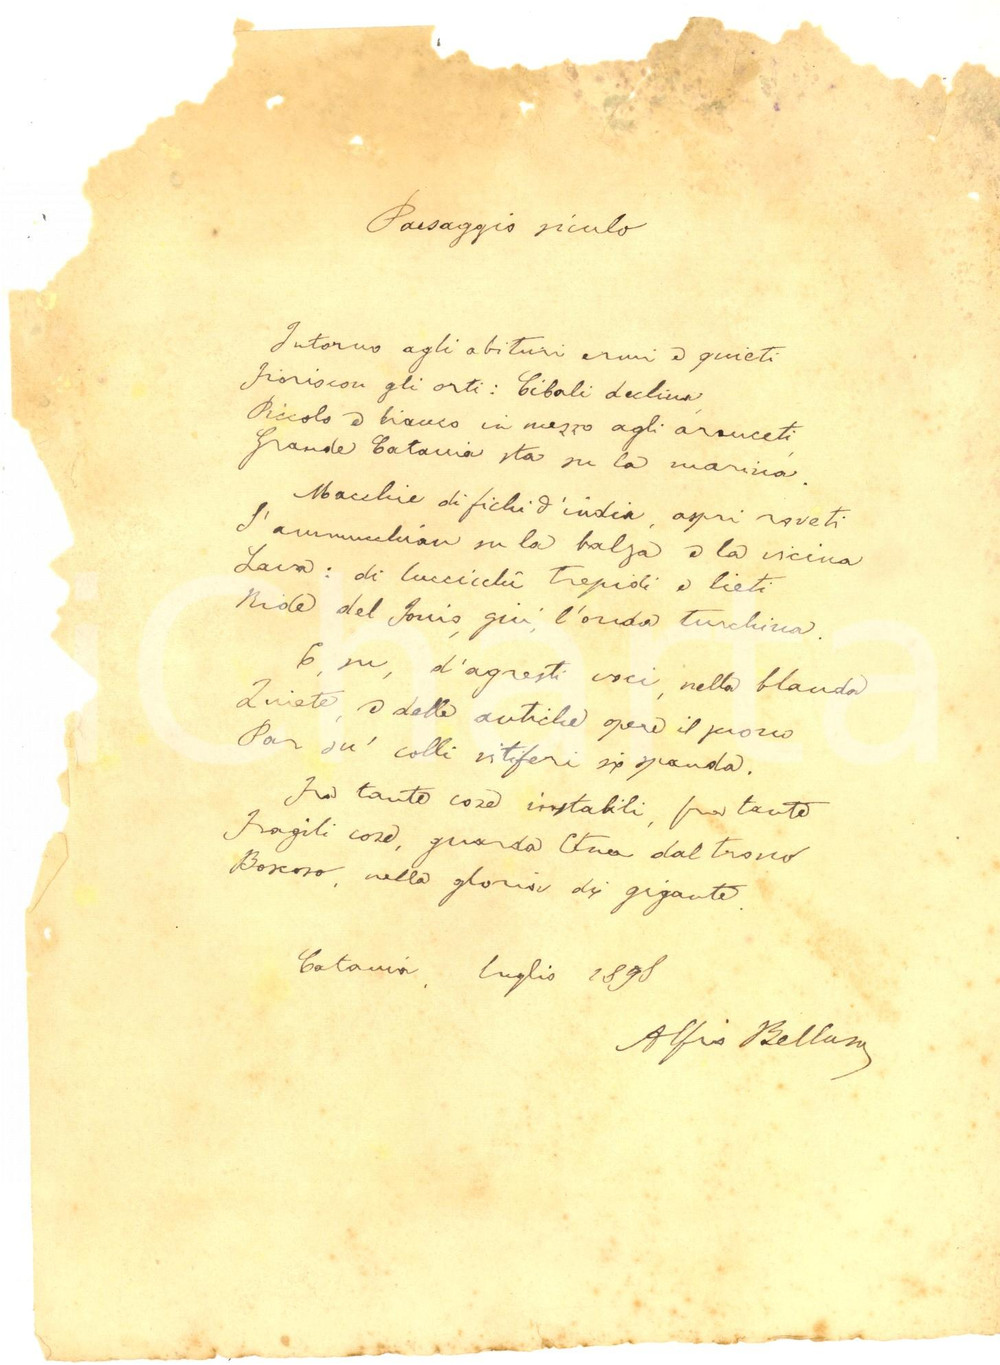 Paesaggio siculo
Intorno agli abituri ermi e quieti
Fioriscon gli orti: Cibali declina,
Piccolo e bianco in mezzo agli aranceti,
Grande Catania sta su la marina.
Macchie di fichi d'india, aspri roveti
S'ammucchian su la balza e la vicina
Lava: di luccichii trepidi e lieti
Ride del Jonio, giù, l'onda turchina.
E, su, d'agresti voci, nella blanda
Quiete, e delle antiche opere il suono
Par su' colli vitiferi si spanda.
Fra tante cose instabili, fra tante
Fragili cose, guarda Etna dal trono
Boscoso, nella gloria di gigante.
Catania, luglio 1898
Alfio Belluso